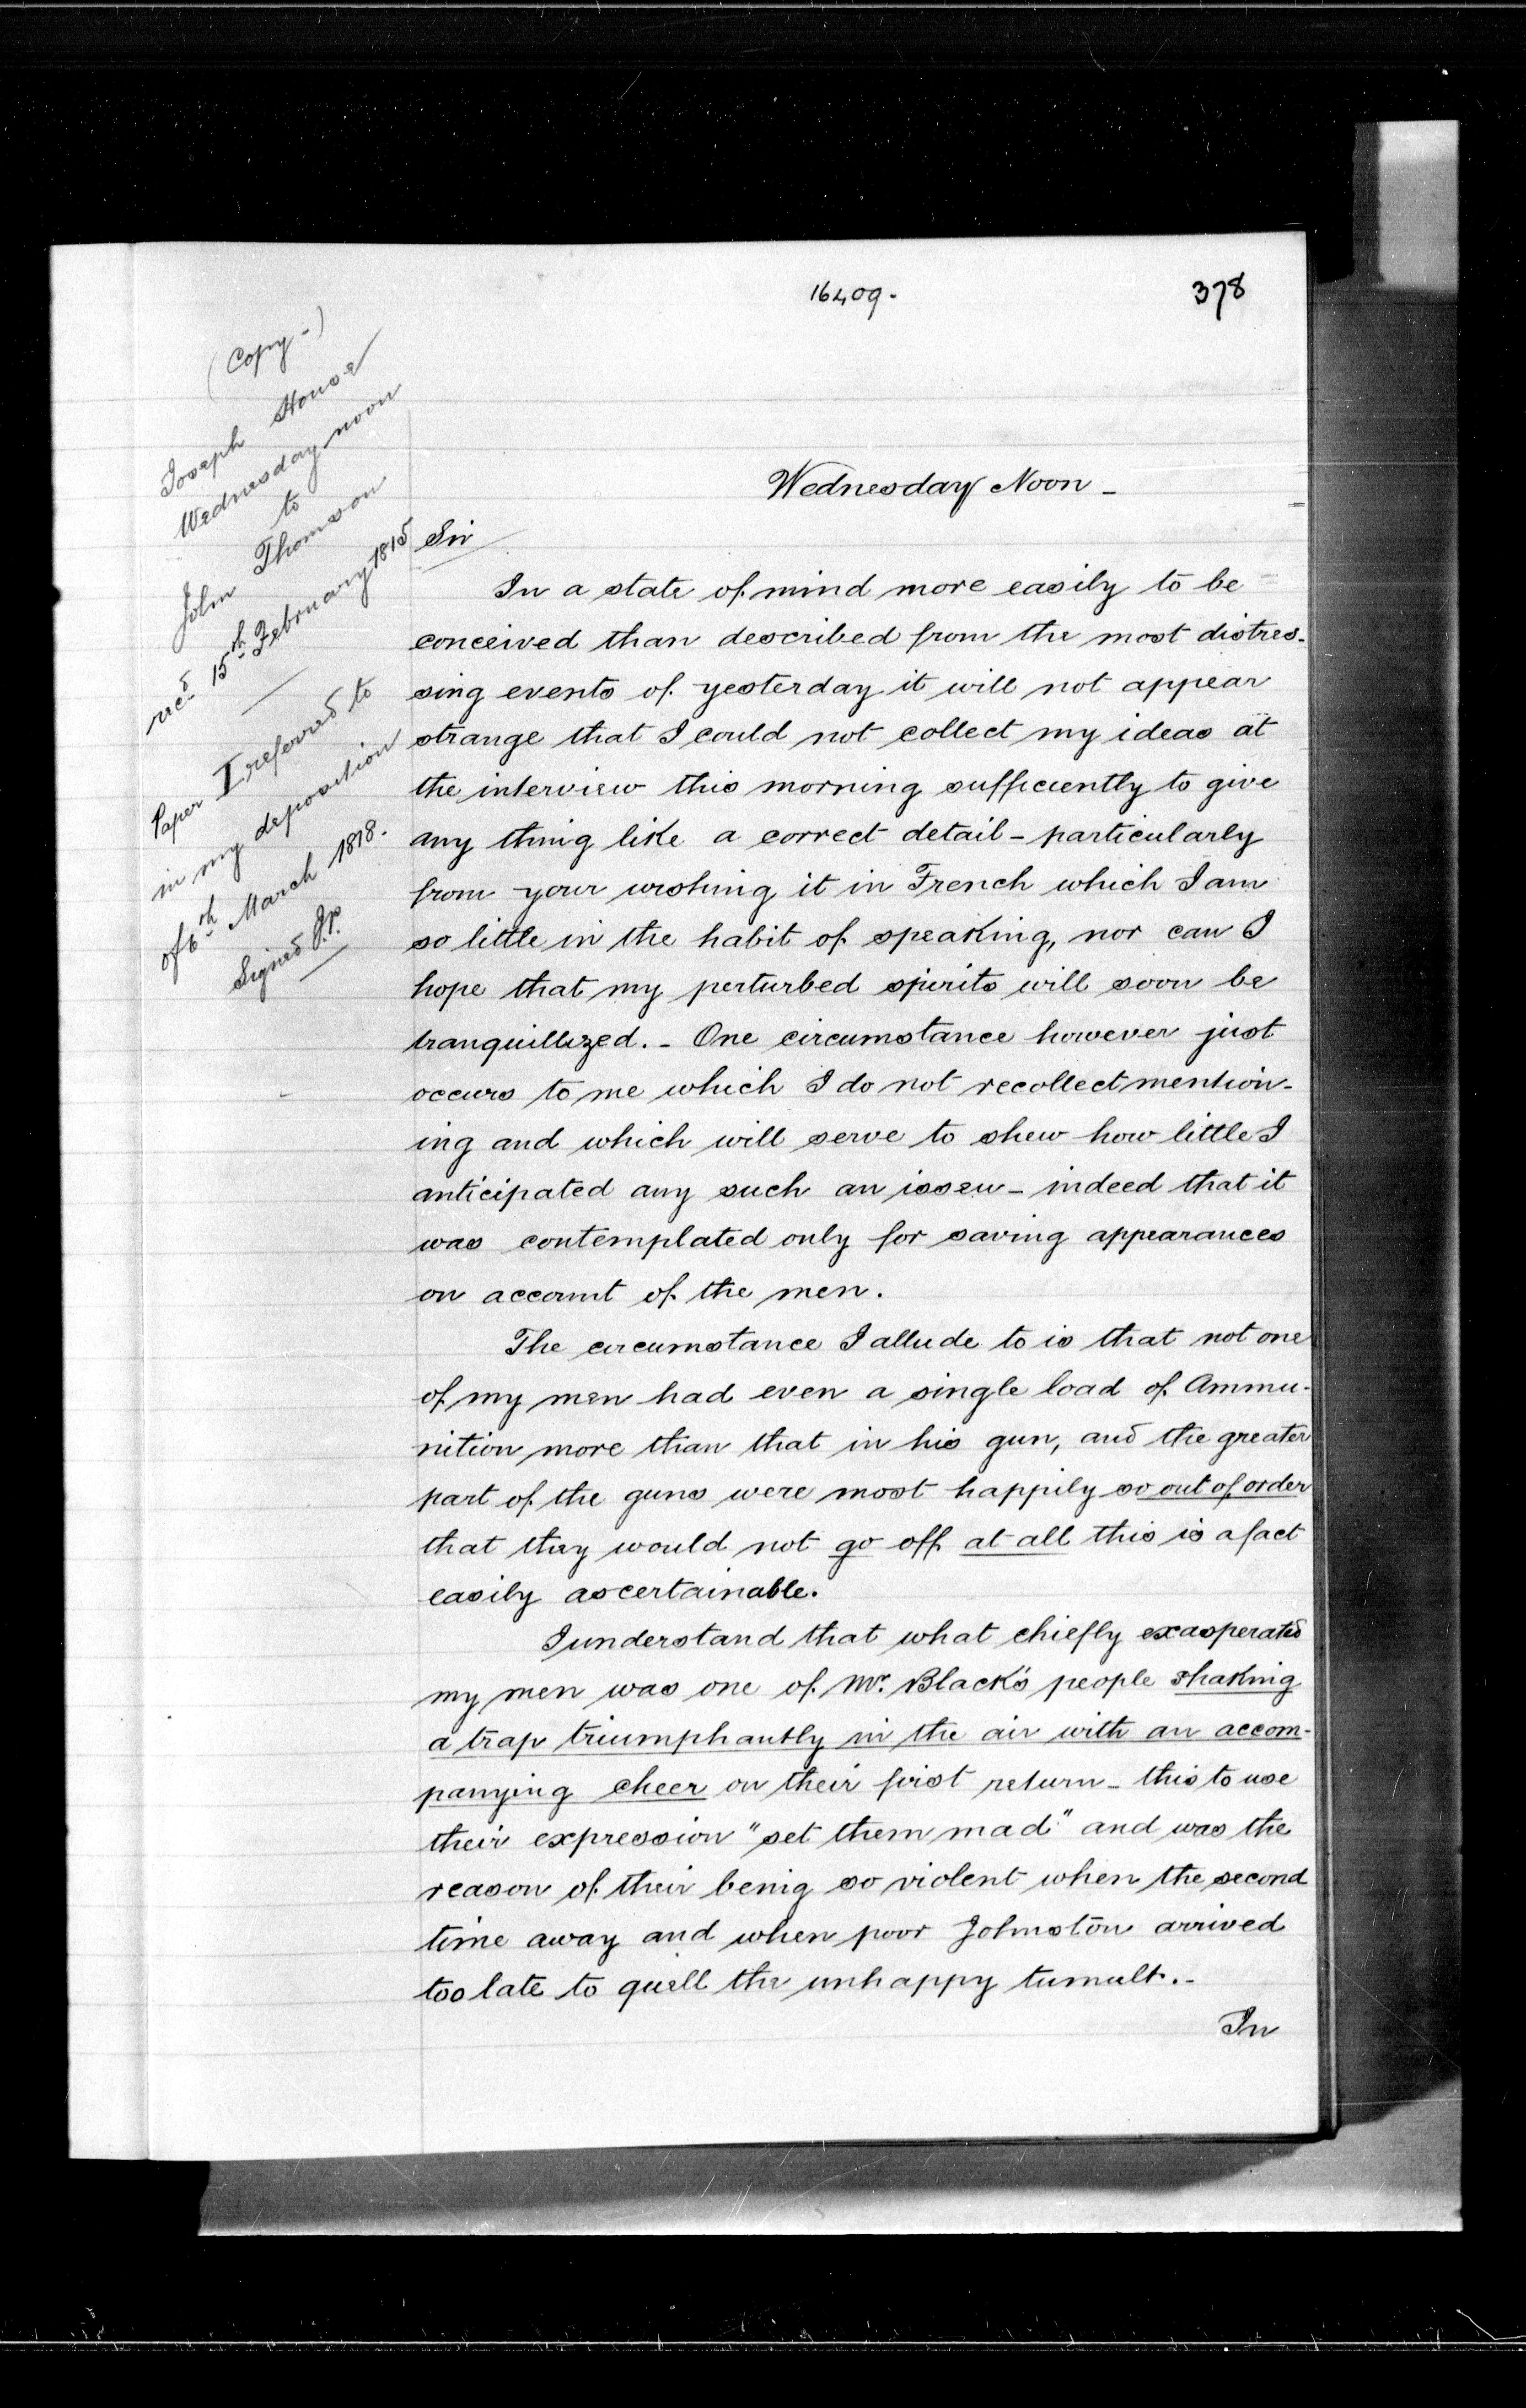 16409.
378
(Copy-)
Joseph House
Wednesday noon
to
John Thomson
recd 15th February 1815
Paper I referred to
in my deposition
of 6th March 1818.
Signed J.P.
Wednesday Noon -
Sir
In a state of mind more easily to be
conceived than described from the most distres-
sing events of yesterday it will not appear
strange that I could not collect my ideas at
the interview this morning sufficiently to give
any thing like a correct detail - particularly
from your wishing it in French which I am
so little in the habit of speaking, nor can I
hope that my perturbed spirits will soon be
tranquillized. - One circumstance however just
occurs to me which I do not recollect mention-
ing and which will serve to shew how little I
anticipated any such an isseu - indeed that it
was contemplated only for saving appearances
on account of the men.
The circumstance I allude to is that not one
of my men had even a single load of Ammu-
nition more than that in his gun, and the greater
part of the guns were most happily so out of order
that they would not go off at all this is a fact
easily ascertainable.
I understand that what chiefly exasperated
my men was one of Mr. Black's people shaking
a trap triumphantly in the air with an accom-
panying cheer on their first return - this to use
their expression "set them mad" and was the
reason of their being so violent when the second
time away and when poor Johnston arrived
too late to quell the unhappy tumult. -
In